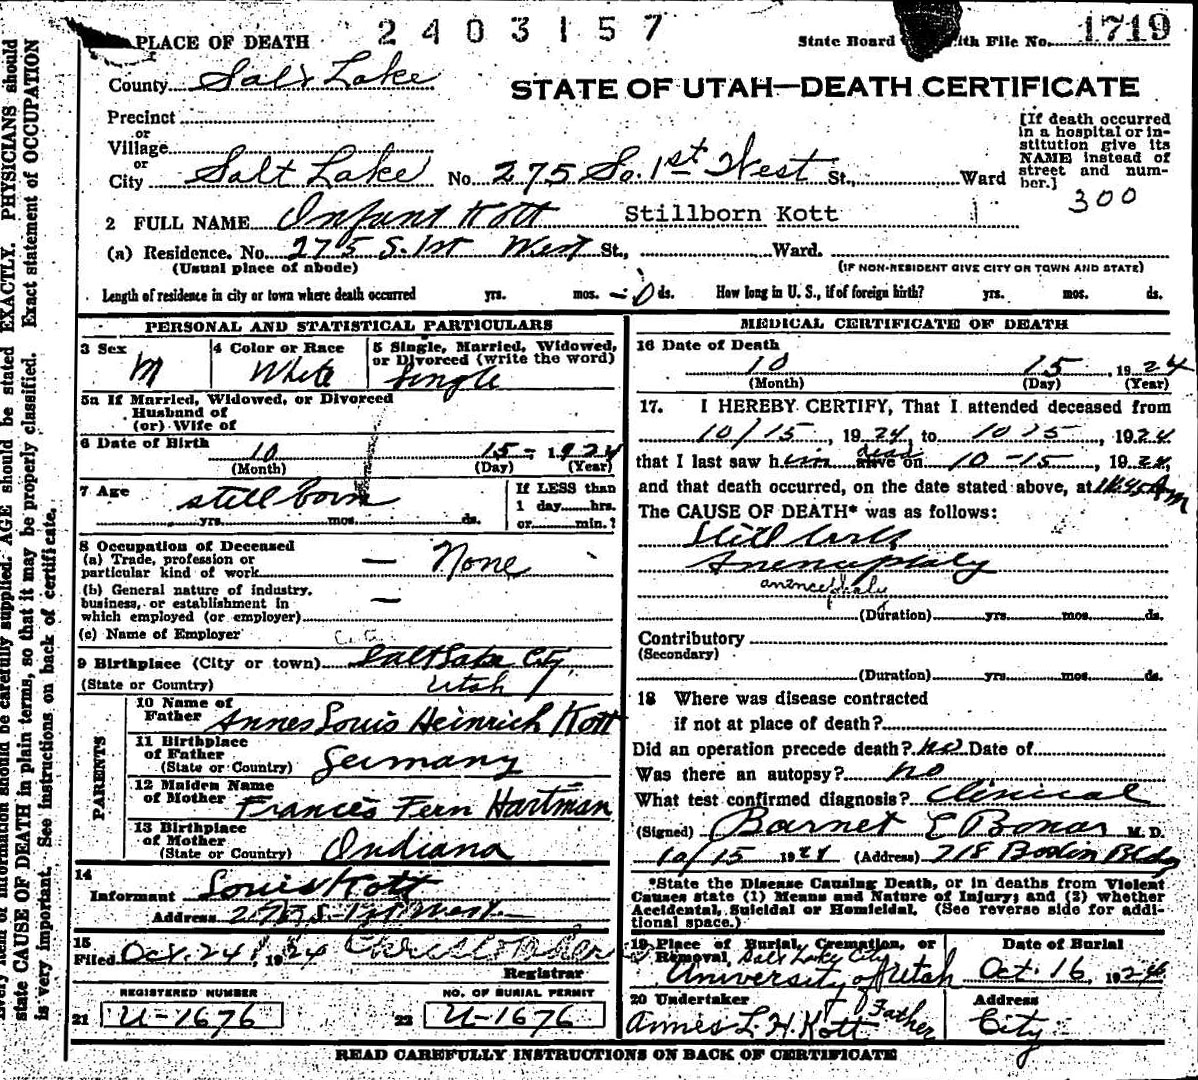 2403157
PLACE OF DEATH
State Board th File No. 1719
County Salt Lake
STATE OF UTAH—DEATH CERTIFICATE
Precinct
or
Village
or
City Salt Lake No. 275 So. 1st West St., Ward
[If death occurred
in a hospital or in-
stitution give its
NAME instead of
street and num-
ber.]
300
2 FULL NAME Infant Kott Stillborn Kott
(a) Residence. No. 275 S. 1st West St., Ward.
(Usual place of abode) (IF NON-RESIDENT GIVE CITY OR TOWN AND STATE)
Length of residence in city or town where death occurred yrs. mos. — 0 ds. How long in U. S., if of foreign birth? yrs. mos. ds.
PERSONAL AND STATISTICAL PARTICULARS
3 Sex M
4 Color or Race White
5 Single, Married, Widowed,
or Divorced (write the word)
Single
5a If Married, Widowed, or Divorced
Husband of
(or) Wife of
6 Date of Birth 10 15 - 1924
(Month) (Day) (Year)
7 Age still born
yrs. mos. ds.
If LESS than
1 day hrs.
or min.?
8 Occupation of Deceased
(a) Trade, profession or
particular kind of work — None
(b) General nature of industry,
business, or establishment in
which employed (or employer) —
(c) Name of Employer
9 Birthplace (City or town) Salt Lake City
(State or Country) Utah
PARENTS
10 Name of
Father Annes Louis Heinrich Kott
11 Birthplace
of Father
(State or Country) Germany
12 Maiden Name
of Mother Frances Fern Hartman
13 Birthplace
of Mother
(State or Country) Indiana
14
Informant Louis Kott
Address 275 S. 1st West
15
Filed Oct. 24, 1924
Registrar
REGISTERED NUMBER
21 U-1676
NO. OF BURIAL PERMIT
22 U-1676
MEDICAL CERTIFICATE OF DEATH
16 Date of Death
10 15, 1924
(Month) (Day) (Year)
17. I HEREBY CERTIFY, That I attended deceased from
10/15, 1924, to 10 15, 1924
that I last saw him dead alive on 10-15, 1924,
and that death occurred, on the date stated above, at 11:45 A m
The CAUSE OF DEATH* was as follows:
Still birth
Anencephaly
anencephaly
(Duration) yrs. mos. ds.
Contributory
(Secondary)
(Duration) yrs. mos. ds.
18 Where was disease contracted
if not at place of death?
Did an operation precede death? No Date of
Was there an autopsy? no
What test confirmed diagnosis? Clinical
(Signed) Barnet E Bonar M. D.
10/15 1924 (Address) 718 Boston Bldg
*State the Disease Causing Death, or in deaths from Violent
Causes state (1) Means and Nature of Injury; and (2) whether
Accidental, Suicidal or Homicidal. (See reverse side for addi-
tional space.)
19 Place of Burial, Cremation, or
Removal, Salt Lake City
University of Utah
Date of Burial
Oct. 16, 1924
20 Undertaker
Annes L. H. Kott Father
Address
City
READ CAREFULLY INSTRUCTIONS ON BACK OF CERTIFICATE
information should be carefully supplied. AGE should be stated EXACTLY. PHYSICIANS should
state CAUSE OF DEATH in plain terms, so that it may be properly classified. Exact statement of OCCUPATION
is very important. See instructions on back of certificate.